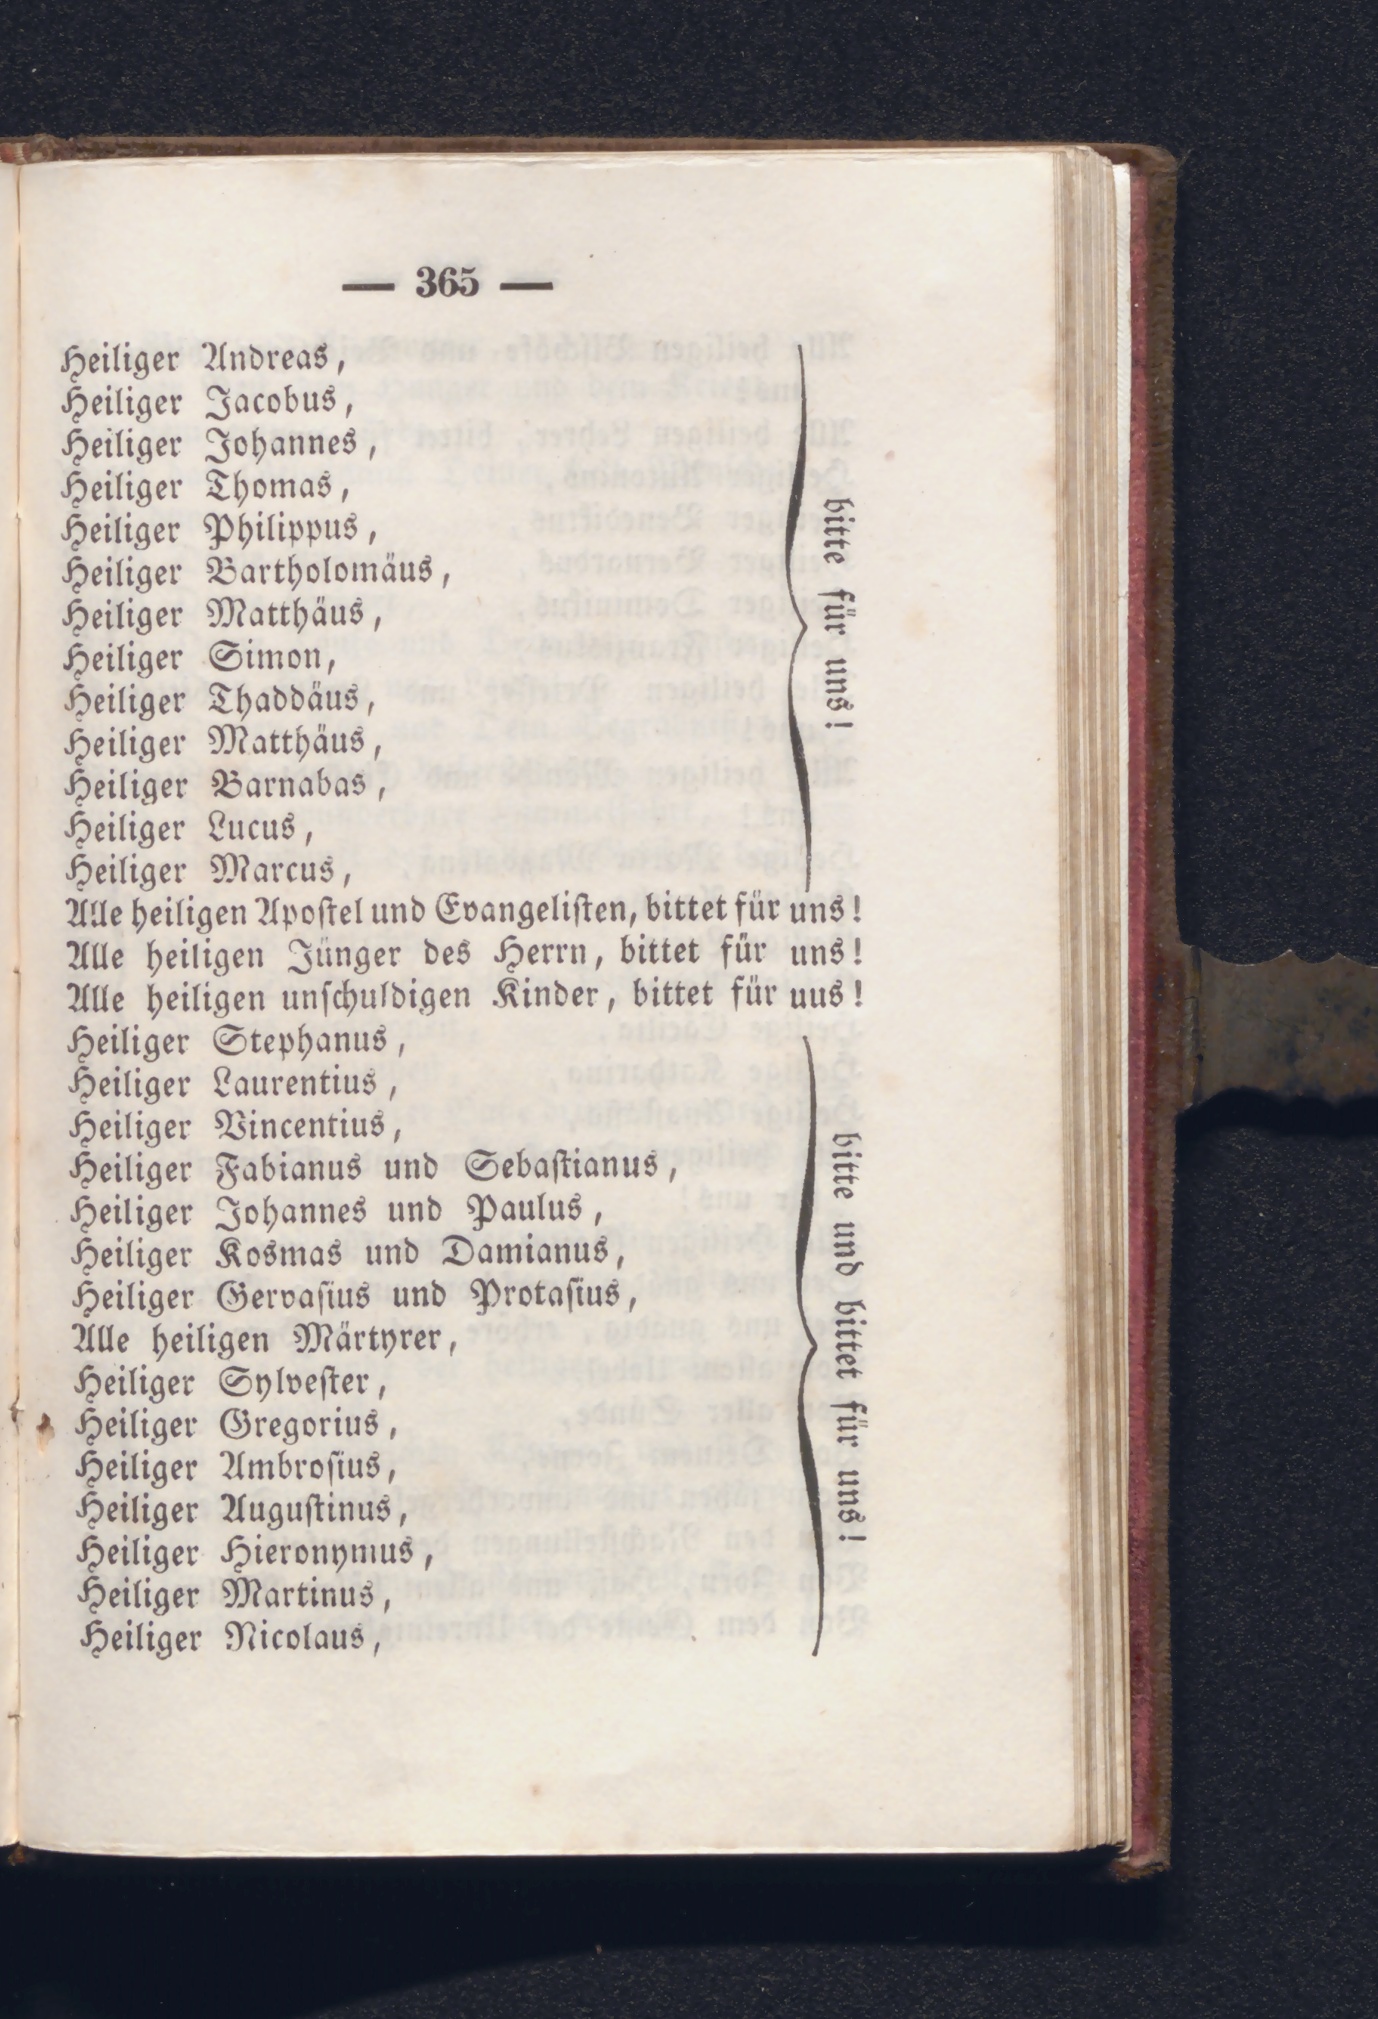 — 365 —
Heiliger Andreas,
Heiliger Jacobus,
Heiliger Johannes,
Heiliger Thomas,
Heiliger Philippus,
Heiliger Bartholomäus,
Heiliger Matthäus,
Heiliger Simon,
Heiliger Thaddäus,
Heiliger Matthäus,
Heiliger Barnabas,
Heiliger Lucus,
Heiliger Marcus,
bitte für uns!
Alle heiligen Apoſtel und Evangeliſten, bittet für uns!
Alle heiligen Jünger des Herrn, bittet für uns!
Alle heiligen unſchuldigen Kinder, bittet für uus!
Heiliger Stephanus,
Heiliger Laurentius,
Heiliger Vincentius,
Heiliger Fabianus und Sebaſtianus,
Heiliger Johannes und Paulus,
Heiliger Kosmas und Damianus,
Heiliger Gervaſius und Protaſius,
Alle heiligen Märtyrer,
Heiliger Sylveſter,
Heiliger Gregorius,
Heiliger Ambroſius,
Heiliger Auguſtinus,
Heiliger Hieronymus,
Heiliger Martinus,
Heiliger Nicolaus,
bitte und bittet für uns!